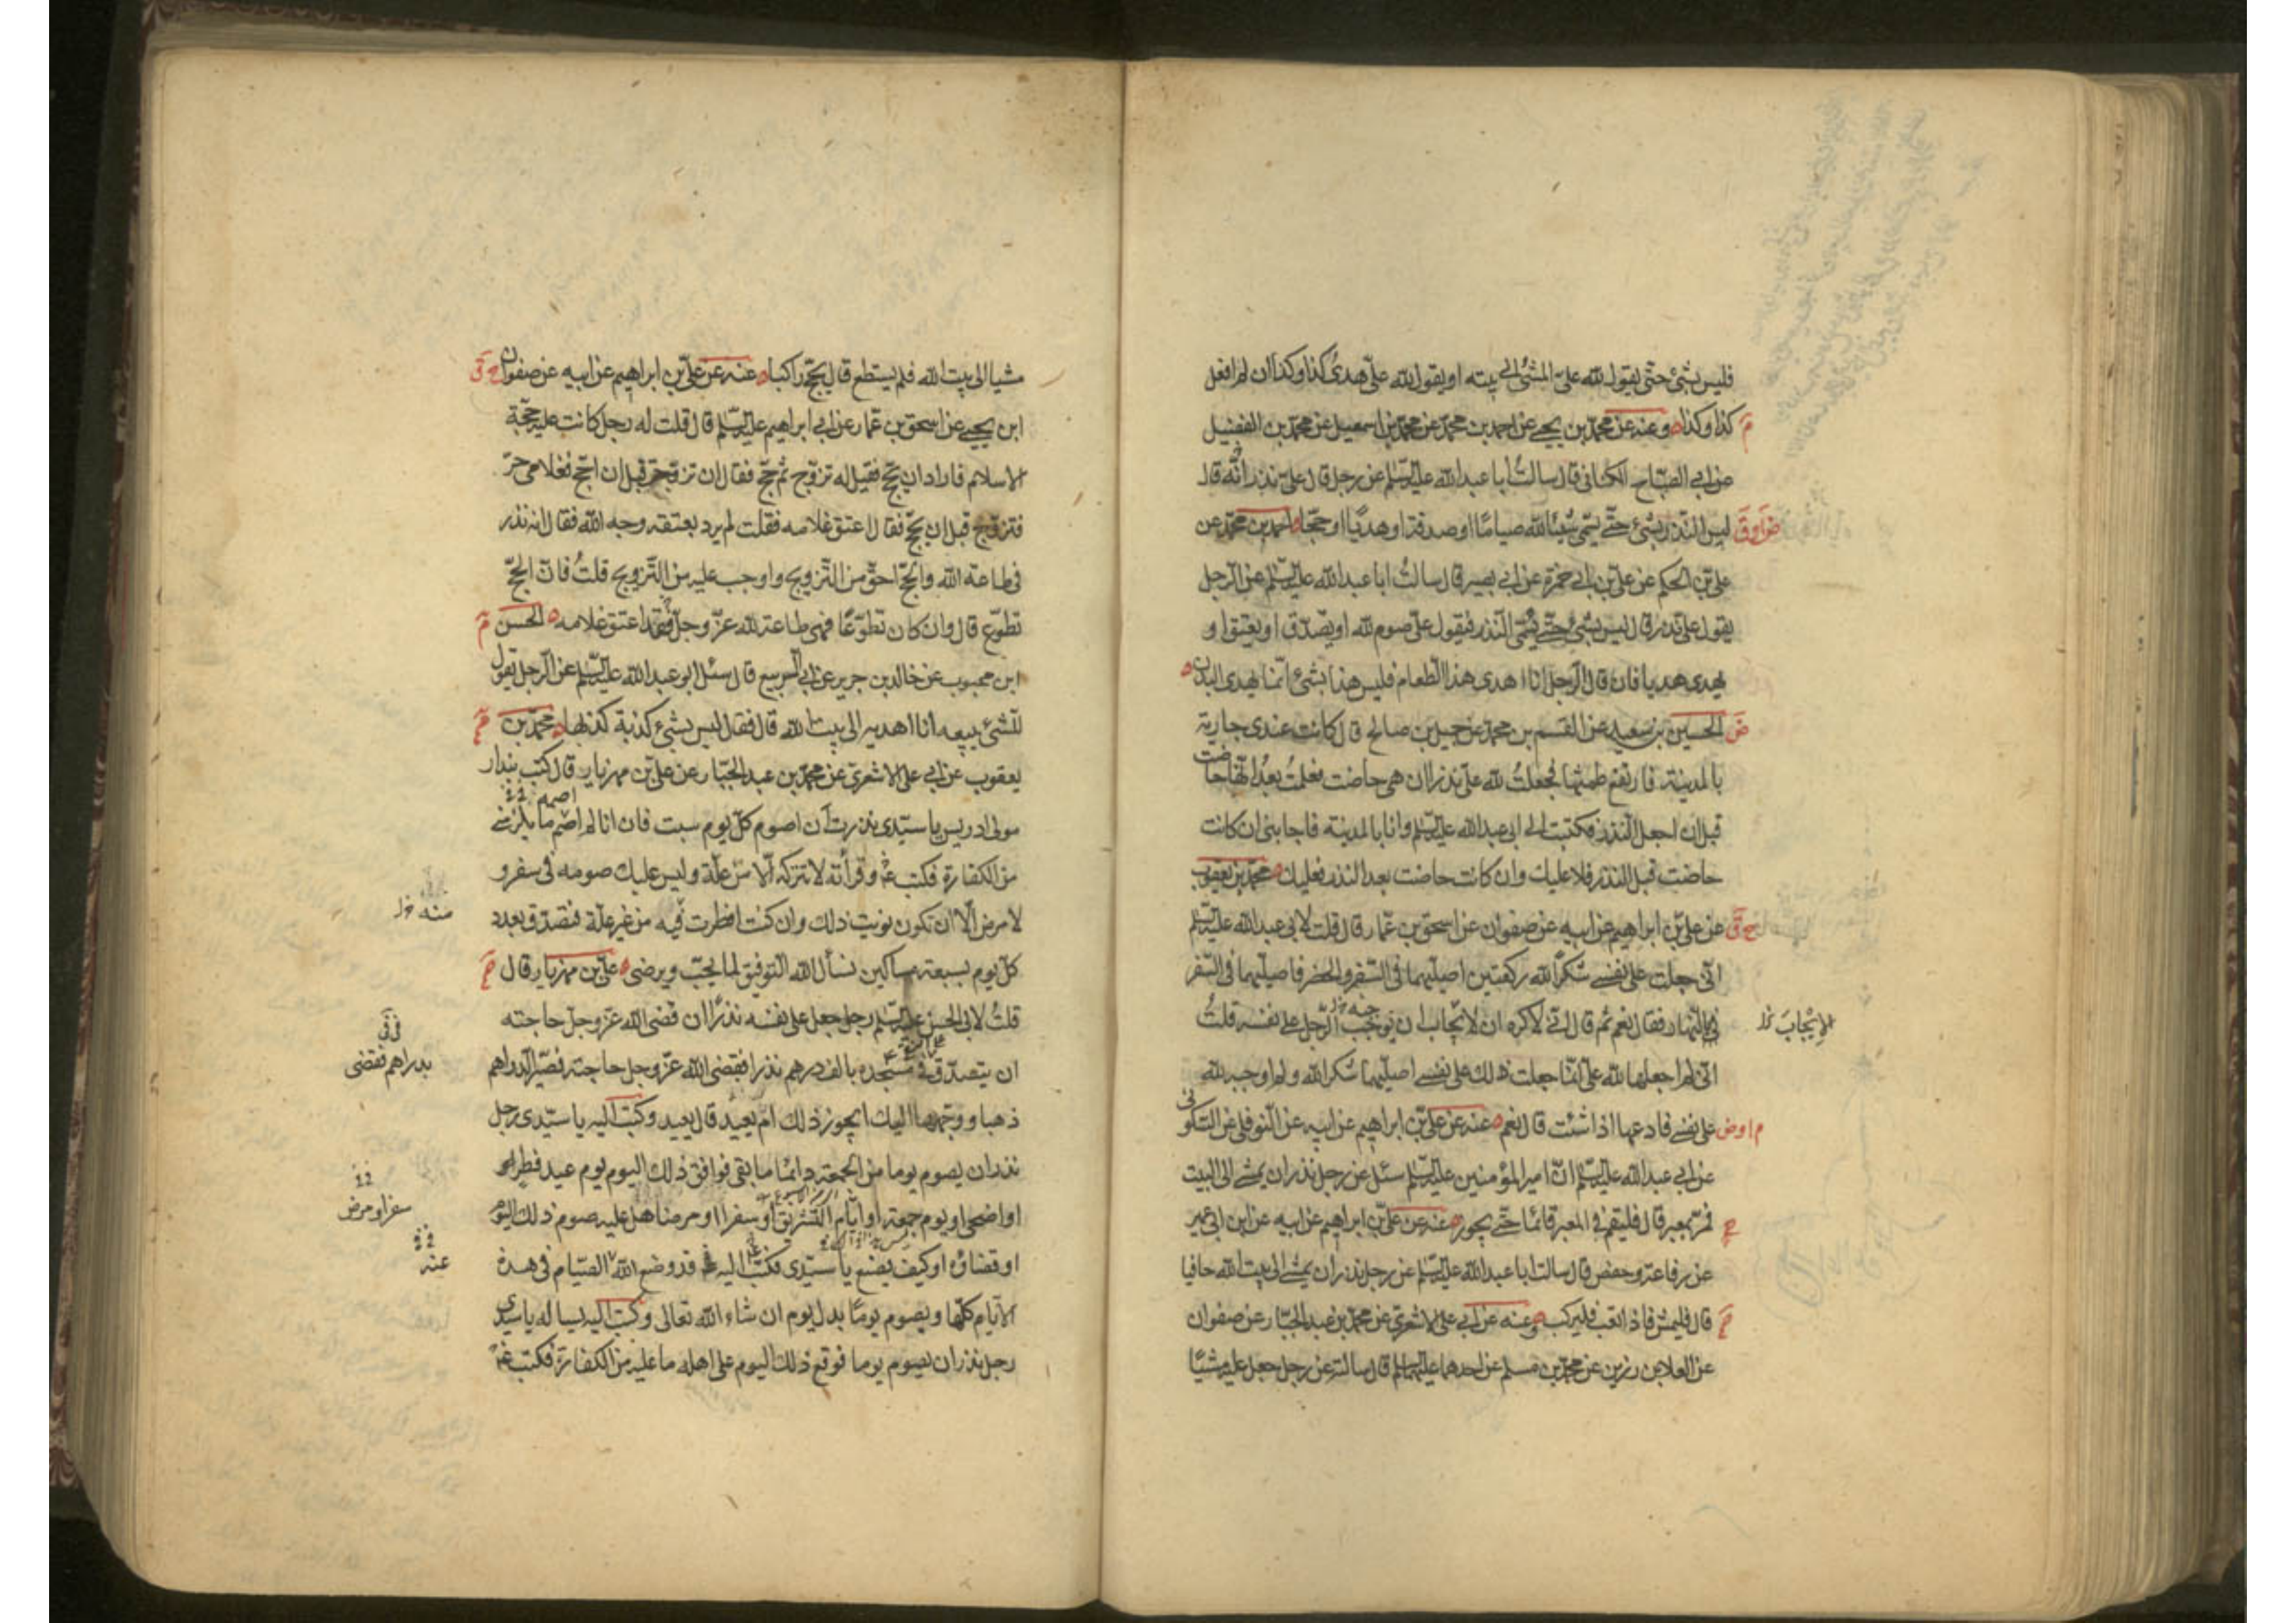 فليس بشئ حتى يقول لله علىّ المشئ الى بيته او يقول لله علىّ هدىُ كذا وكذا ان لم افعل
كذا وكذا وعنه عن محمّد بن يحيى عن احمد بن محمّد عن محمّد بن اسمعيل عن محمّد بن الفضيل
عن ابى الصبّاح الكنانى قال سالتُ ابا عبد الله عليه السّلم عن رجل قال علىّ نذر انّه قال
ليس النّذر بشئ حتّى يسمّى شيئا لله صيامًا او صدقة او هديًا او حجّا احمد بن محمّد عن
علىّ بن الحكم عن علىّ بن ابى حمزة عن ابى بصير قال سالتُ ابا عبد الله عليه السّلم عن الرّجل
يقول علىّ نذر قال ليس بشئ حتّى يسمّى النّذر فيقول علىّ صوم لله او يصّدّق او يعتق او
يهدى هديا فان قال الرّجل انا اهدى هذا الطعام فليس هذا بشئ انّما يهدى البدن
الحسين بن سعيد عن القسم بن محمّد عن جميل بن صالح قال كانت عندى جارية
بالمدينة فارتفع طمثها فجعلتُ لله علىّ نذرا ان هى حاضت فعلمتُ بعدُ انّها حاضت
قبل ان اجعل النّذر فكتبت الى ابى عبد الله عليه السّلم وانا بالمدينة فاجابنى ان كانت
حاضت قبل النذر فلا عليك وان كانت حاضت بعد النذر فعليك محمّد بن يعقوب
عن علىّ بن ابراهيم عن ابيه عن صفوان عن اسحق بن عمّار قال قلت لابى عبد الله عليه السّلم
انّى جعلت على نفسى شكرًا لله ركعتين اصليّهما فى السّفر والحضر فاصليّهما فى السّفر
بالنّهار فقال نعم ثم قال انّى لاكره ان لايجاب ان يوجب الرّجل على نفسه قلتُ
الايجابَ خ‍ل
انّى لم اجعلها لله علىّ انّما جعلت ذلك على نفسى اصليّهما شكرا لله ولم اوجبه لله
على نفسى فادعها اذا شئت قال نعم عنه عن علىّ بن ابراهيم عن ابيه عن النّوفلى عن السّكونى
عن ابى عبد الله عليه السّلم انّ امير المؤمنين عليه السّلم سئل عن رجل نذر ان يمشى الى البيت
فمرّ بمعبر قال فليقم فى المعبر قائمًا حتّى يجوز عنه عن علىّ بن ابراهيم عن ابيه عن ابن ابى عمير
عن رفاعة وحفص قال سالت ابا عبد الله عليه السّلم عن رجل نذر ان يمشى الى بيت الله حافيا
قال فليمش فاذا تعب فليركب وعنه عن ابى على الاشعرىّ عن محمّد بن عبد الجبّار عن صفوان
عن العلا بن رزين عن محمّد بن مسلم عن احدهما عليهما السلم قال سالته عن رجل جعل عليه مشيًا
مشيا الى بيت الله فلم يستطع قال يحجّ راكبا عنه عن علىّ بن ابراهيم عن ابيه عن صفوان
ابن يحيى عن اسحق بن عمّار عن ابى ابراهيم عليه السّلم قال قلت له رجل كانت عليه حجّة
الاسلام فاراد ان يحجّ فقيل له تزوّج ثم حجّ فقال ان تزوّجت قبل ان احجّ فغلامى حرّ
فتزوّج قبل ان يحجّ فقال اعتق غلامه فقلت لم يرد بعتقه وجه الله فقال انه نذر
فى طاعة الله والحجّ احقّ من التّزويج واوجب عليه من التّزويج قلتُ فانّ الحجّ
تطوّع قال وان كان تطوّعًا فهى طاعة لله عزّ وجلّ فقد اعتق غلامه الحسن
ابن محبوب عن خالد بن جرير عن ابى الربيع قال سئل ابو عبد الله عليه السّلم عن الرّجل يقول
للشئ يبيعه انا اهديه الى بيت الله قال فقال ليس بشئ كذبة كذبها محمّد بن
يعقوب عن ابى على الاشعرىّ عن محمّد بن عبد الجبّار عن علىّ بن مهزيار قال كتب بندار
مولى ادريس يا سيّدى نذرت ان اصوم كلّ يوم سبت فان انا لم اصم ما يلزمنى
من الكفارة فكتب وقرأته لا تتركه الّا من علّة وليس عليك صومه فى سفر و
لا مرض الّا ان تكون نويت ذلك وان كنت افطرت فيه من غير علّة فتصدّق بعدد
منه خ‍ل
كلّ يوم بسبعة مساكين نسأل الله التّوفيق لما يحبّ ويرضى علىّ بن مهزيار قال
قلتُ لابى الحسن عليه السّلم رجل جعل على نفسه نذرًا ان قضى الله عزّ وجلّ حاجته
ان يتصدّق فى مسجده بالف درهم نذرا فقضى الله عزّ وجل حاجته فصيّر الدّراهم
بدراهم فقضى
ذهبا ووجّهها اليك ايجوز ذلك ام يعيد قال يعيد وكتب اليه يا سيّدى رجل
نذر ان يصوم يوما من الجمعة دائمًا ما بقى فوافق ذلك اليوم يوم عيد فطر
او اضحى او يوم جمعة او ايّام التّشريق او سفرا او مرضا هل عليه صوم ذلك اليوم
سفر او مرض
او قضاؤه او كيف يصنع يا سيّدى فكتب اليه قد وضع الله الصّيام فى هذه
عنه
الايّام كلّها ويصوم يومًا بدل يوم ان شاء الله تعالى وكتب اليه يساله يا سيّدى
رجل نذر ان يصوم يوما فوقع ذلك اليوم على اهله ما عليه من الكفارة فكتب